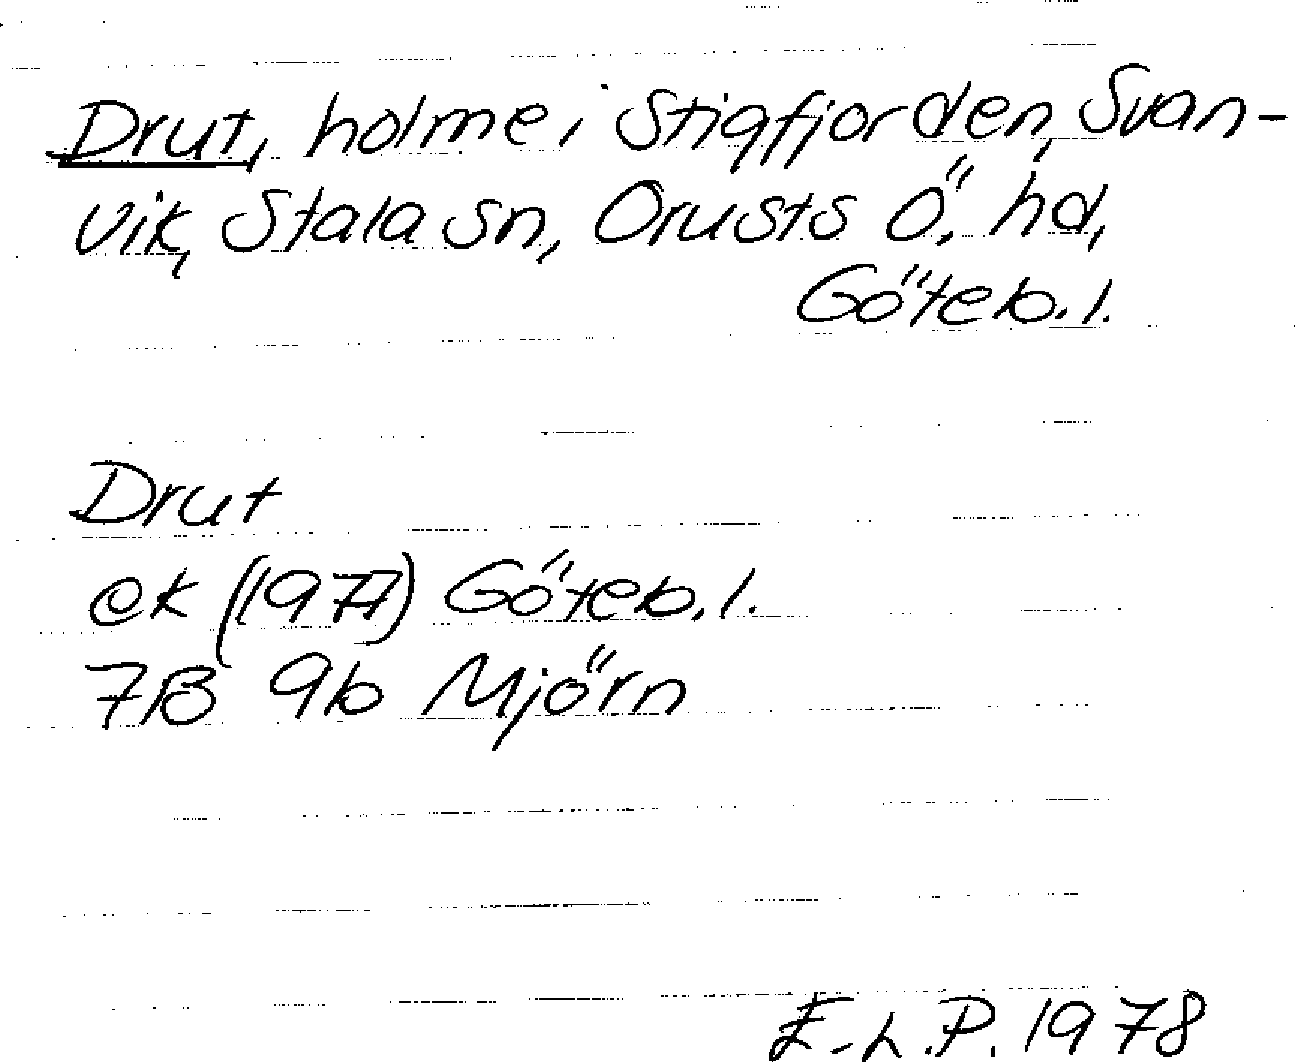 Drut, holme i Stigfjorden, Svan-
vik, Stala sn, Orusts Ö. hd,
Göteb. l.
Drut
ek (1977) Göteb. l.
7B 9b Mjörn
E.L.P. 1978